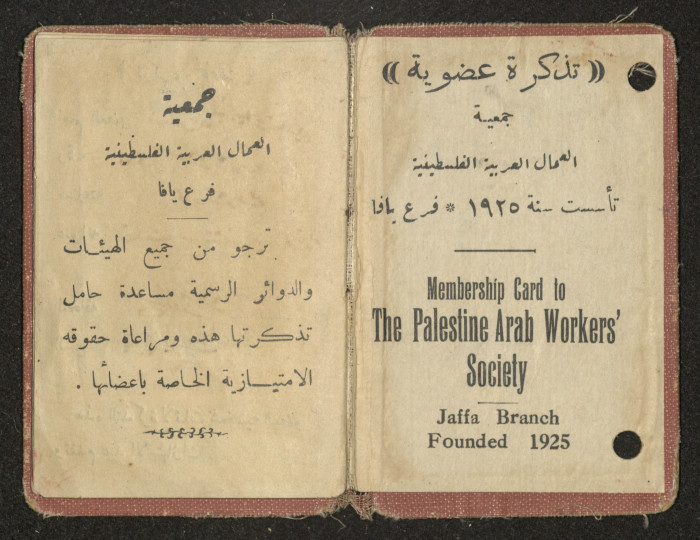 « تذكرة عضوية »
جمعية
العمال العربية الفلسطينية
تأسست سنة ١٩٢٥ * فرع يافا
Membership Card to
The Palestine Arab Workers'
Society
Jaffa Branch
Founded 1925
جمعية
العمال العربية الفلسطينية
فرع يافا
ترجو من جميع الهيئات
والدوائر الرسمية مساعدة حامل
تذكرتها هذه ومراعاة حقوقه
الامتيازية الخاصة باعضائها .